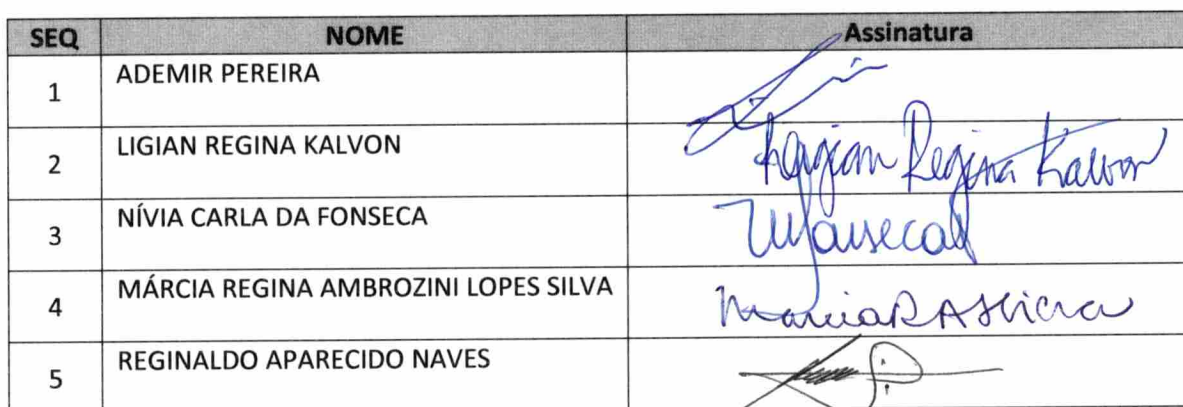 SEQ NOME Assinatura
1 ADEMIR PEREIRA
2 LIGIAN REGINA KALVON Ligian Regina Kalvon
3 NÍVIA CARLA DA FONSECA
4 MÁRCIA REGINA AMBROZINI LOPES SILVA
5 REGINALDO APARECIDO NAVES